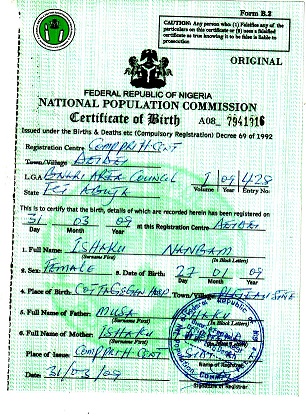 Form B.2
CAUTION: Any person who (1) Falsifies any of the
particulars on this certificate or (2) uses a falsified
certificate as knowing it to be false is liable to
prosecution
ORIGINAL
FEDERAL REPUBLIC OF NIGERIA
NATIONAL POPULATION COMMISSION
Certificate of Birth A08 7941916
Issued under the Births & Deaths etc (Compulsory Registration) Decree 69 of 1992
Registration Centre
Town/Village
L.G.A AREA COUNCIL 1 09 428
State FCT ABUJA Volume Year Entry No.
This is to certify that the birth, details of which are recorded herein has been registered on
31 03 09 at this Registration Centre
Day Month Year
1. Full Name: ISHAKU NANBAM
(Surname First) (In Block Letters)
2. Sex: FEMALE 3. Date of Birth: 27 01 09
Day Month Year
4. Place of Birth: COTTAGE HOSP Town/Village PLATEAU STATE
5. Full Name of Father: MUSA ISHAKU
(Surname First) (In Block Letters)
6. Full Name of Mother: ISHAKU
(Surname First)
Place of issue:
Name of Registrar
Date: 31/03/09
Signature of Registrar